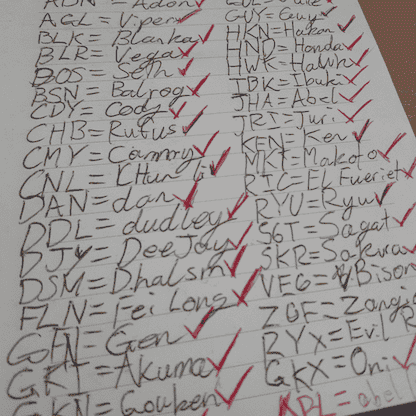 ADN = Adon
AGL = Viper
BLK = Blanka
BLR = Vega
BOS = Seth
BSN = Balrog
CDY = Cody
CHB = Rufus
CMY = Cammy
CNL = CHun Li
DAN = dan
DDL = dudley
DJY = DeeJay
DSM = Dhalsm
FLN = Fei Long
GEN = Gen
GKT = Akuma
GKN = Gouken
GUY = Guy
HKN = Hakan
HND = Honda
HWK = Hawk
IBK = Ibuki
JHA = Abel
JRI = Juri
KEN = Ken
MKT = Makoto
RIC = EL Fueriet
RYU = Ryu
SGT = Sagat
SKR = Sakura
VEG = V.Bison
ZGF = Zangi
RYX = Evil R
GKX = Oni